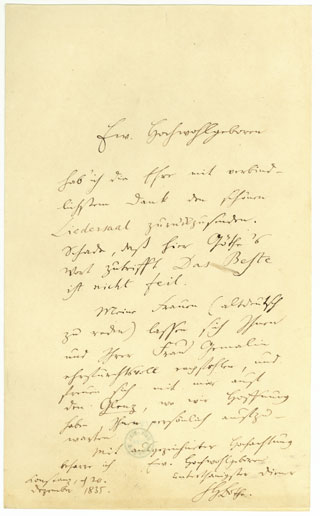 Ew. Hochwohlgeboren
hab' ich die Ehre mit verbind-
lichstem Dank den schönen
Liedersaal zurückzusenden.
Schade, daß hier Göthe's
Wort zutrifft Das Beste
ist nicht feil.
Meine Frauen (altdeutsch
zu reden) lassen sich Ihnen
und Ihrer Frau Gemalin
ehrfurchtsvoll empfehlen, und
freuen sich mit mir auf
den wo wir Hoffnung
haben Ihnen persönlich aufzu-
warten.
Mit ausgezeichneter Hochachtung
beharre ich Ew. Hochwohlgeboren
unterthänigster Diener
Konstanz, d 20.
Dezember 1835.